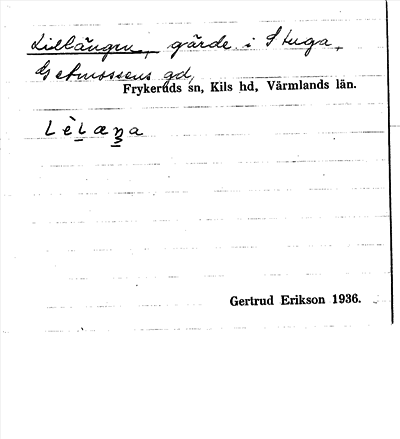 Lillängen, gärde i Stuga,
Getmossens gd,
Frykeruds sn, Kils hd, Värmlands län.
Lèlæŋa
Gertrud Erikson 1936.